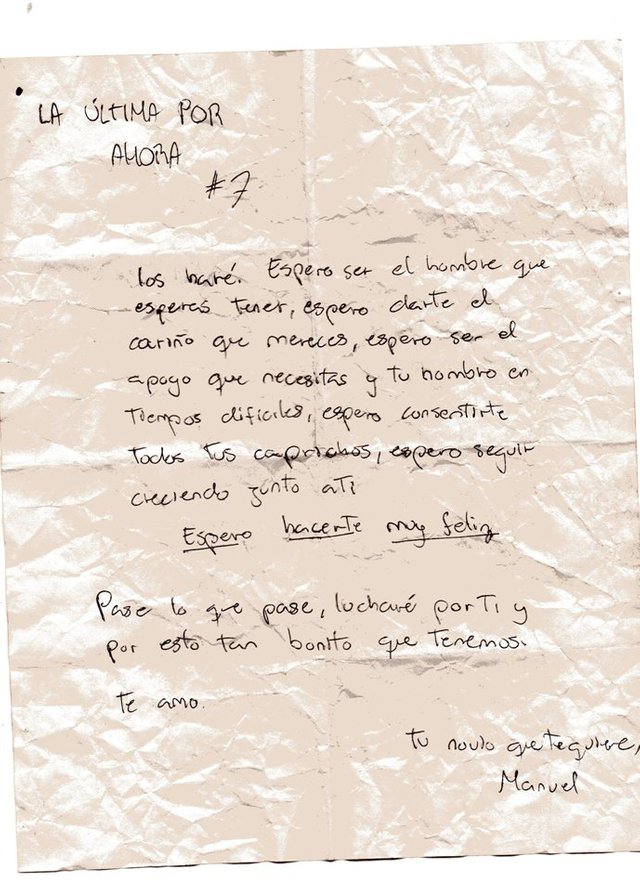 LA ÚLTIMA POR
AHORA
#7
los haré. Espero ser el hombre que
esperas tener, espero darte el
cariño que mereces, espero ser el
apoyo que necesitas y tu hombro en
tiempos dificiles, espero consentirte
todos tus caprichos, espero seguir
creciendo junto a ti
Espero hacerte muy feliz
Pase lo que pase, lucharé por ti y
por esto tan bonito que tenemos.
te amo.
tu novio que te quiere,
Manuel